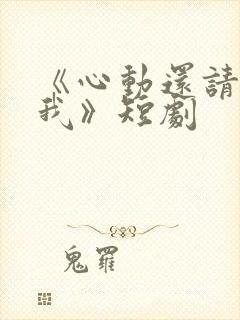 《心動還請
我》短劇
鬼羅